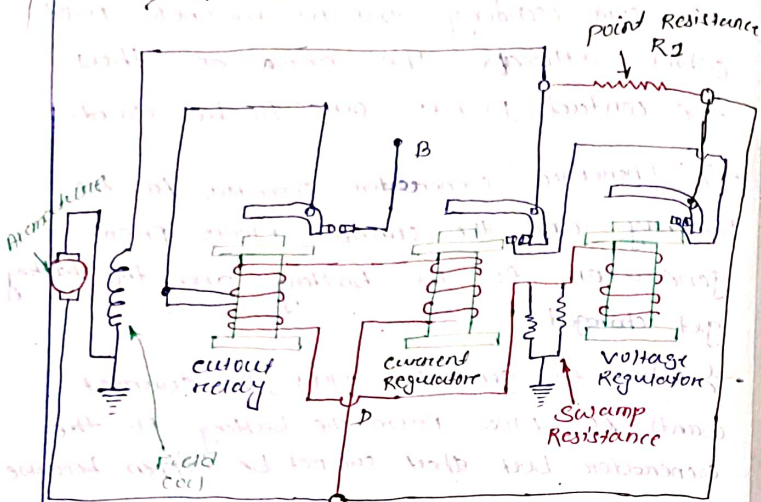 point Resistance
R1
B
Armature
cutout
relay
current
Regulator
voltage
Regulator
D
Swamp
Resistance
Field
coil